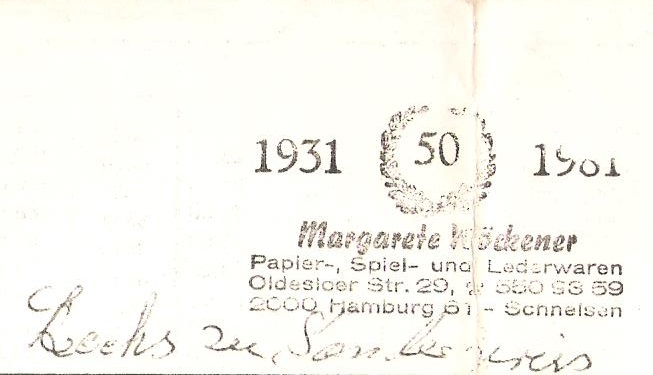 1931 50 1981
Margarete Wöckener
Papier-, Spiel- und Lederwaren
Oldesloer Str. 29, ☎ 550 93 59
2000 Hamburg 61 - Schnelsen